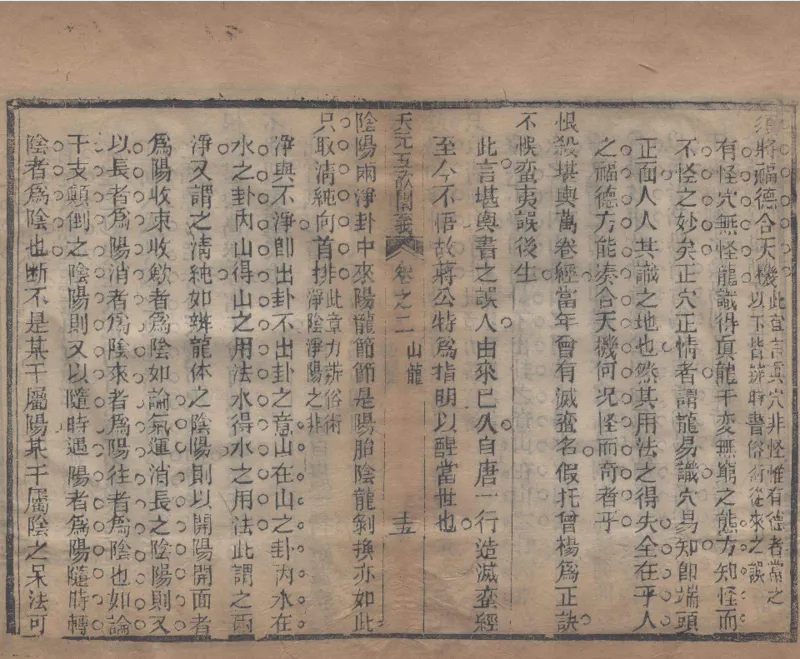 將福德合天機 此章言真穴非怪惟有德者當之
以下皆辨時書俗術從來之誤
有怪穴無怪龍識得真龍千變無窮之態方知怪而
不怪之妙矣正穴正情者謂龍易識穴易知即端頭
正面人人共識之地也然其用法之得失全在乎人
之福德方能湊合天機何况怪而奇者乎
恨殺堪輿萬卷經當年曾有滅蠻名假托曾楊為正訣
不悞蠻夷誤後生
此言堪輿書之誤人由來已久自唐一行造滅蠻經
至今不悟故蔣公特為指明以醒當世也
天元五歌闡義 卷之二 山龍 十五
陰陽兩淨卦中來陽龍節節是陽胎陰龍剝換亦如此
只取清純向首排 此章力辨俗術
淨陰淨陽之非
淨與不淨即出卦不出卦之意山在山之卦內水在
水之卦內山得山之用法水得水之用法此謂之兩
淨又謂之清純如辨龍体之陰陽則以開陽開面者
為陽收束收斂者為陰如論氣運消長之陰陽則又
以長者為陽消者為陰來者為陽往者為陰也如論
干支顛倒之陰陽則又以隨時遇陽者為陽隨時轉
陰者為陰也断不是某干屬陽某干屬陰之呆法可